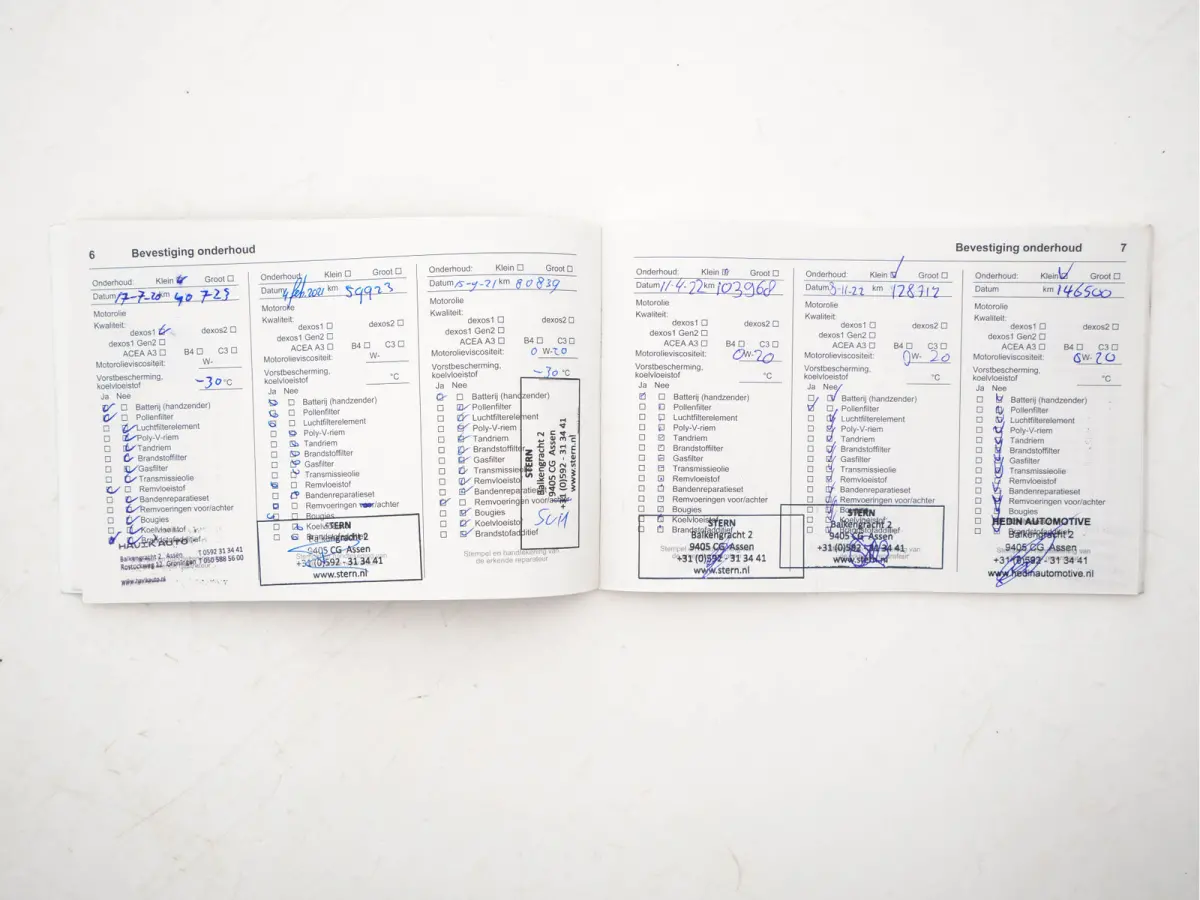 6 Bevestiging onderhoud
Onderhoud: Klein Groot
Datum 17-7-20 km 40 723
Motorolie
Kwaliteit:
dexos1 dexos2
dexos1 Gen2
ACEA A3 B4 C3
Motorolieviscositeit: W-
Vorstbescherming,
koelvloeistof -30 °C
Ja Nee
Batterij (handzender)
Pollenfilter
Luchtfilterelement
Poly-V-riem
Tandriem
Brandstoffilter
Gasfilter
Transmissieolie
Remvloeistof
Bandenreparatieset
Remvoeringen voor/achter
Bougies
Koelvloeistof
Brandstofadditief
HAVIK AUTO
Balkengracht 2, Assen T 0592 31 34 41
Rostockweg 12, Groningen T 050 588 56 00
Onderhoud: Klein Groot
Datum 4 feb. 2021 km 59923
Motorolie
Kwaliteit:
dexos1 dexos2
dexos1 Gen2
ACEA A3 B4 C3
Motorolieviscositeit: W-
Vorstbescherming,
koelvloeistof °C
Ja Nee
Batterij (handzender)
Pollenfilter
Luchtfilterelement
Poly-V-riem
Tandriem
Brandstoffilter
Gasfilter
Transmissieolie
Remvloeistof
Bandenreparatieset
Remvoeringen voor/achter
Bougies
Koelvloeistof
Brandstofadditief
STERN
Balkengracht 2
9405 CG Assen
+31 (0)592 - 31 34 41
www.stern.nl
Onderhoud: Klein Groot
Datum 15-9-21 km 80839
Motorolie
Kwaliteit:
dexos1 dexos2
dexos1 Gen2
ACEA A3 B4 C3
Motorolieviscositeit: 0 W-20
Vorstbescherming,
koelvloeistof -30 °C
Ja Nee
Batterij (handzender)
Pollenfilter
Luchtfilterelement
Poly-V-riem
Tandriem
Brandstoffilter
Gasfilter
Transmissieolie
Remvloeistof
Bandenreparatieset
Remvoeringen voor/achter
Bougies
Koelvloeistof
Brandstofadditief
Stempel en handtekening van
de erkende reparateur
STERN
Balkengracht 2
9405 CG Assen
+31 (0)592 - 31 34 41
www.stern.nl
Bevestiging onderhoud 7
Onderhoud: Klein Groot
Datum 11-4-22 km 103968
Motorolie
Kwaliteit:
dexos1 dexos2
dexos1 Gen2
ACEA A3 B4 C3
Motorolieviscositeit: 0W-20
Vorstbescherming,
koelvloeistof °C
Ja Nee
Batterij (handzender)
Pollenfilter
Luchtfilterelement
Poly-V-riem
Tandriem
Brandstoffilter
Gasfilter
Transmissieolie
Remvloeistof
Bandenreparatieset
Remvoeringen voor/achter
Bougies
Koelvloeistof
Brandstofadditief
STERN
Balkengracht 2
9405 CG Assen
+31 (0)592 - 31 34 41
www.stern.nl
Onderhoud: Klein Groot
Datum 3-11-22 km 128712
Motorolie
Kwaliteit:
dexos1 dexos2
dexos1 Gen2
ACEA A3 B4 C3
Motorolieviscositeit: 0W-20
Vorstbescherming,
koelvloeistof °C
Ja Nee
Batterij (handzender)
Pollenfilter
Luchtfilterelement
Poly-V-riem
Tandriem
Brandstoffilter
Gasfilter
Transmissieolie
Remvloeistof
Bandenreparatieset
Remvoeringen voor/achter
Bougies
Koelvloeistof
Brandstofadditief
STERN
Balkengracht 2
9405 CG Assen
+31 (0)592 - 31 34 41
www.stern.nl
Onderhoud: Klein Groot
Datum km 146500
Motorolie
Kwaliteit:
dexos1 dexos2
dexos1 Gen2
ACEA A3 B4 C3
Motorolieviscositeit: 0W-20
Vorstbescherming,
koelvloeistof °C
Ja Nee
Batterij (handzender)
Pollenfilter
Luchtfilterelement
Poly-V-riem
Tandriem
Brandstoffilter
Gasfilter
Transmissieolie
Remvloeistof
Bandenreparatieset
Remvoeringen voor/achter
Bougies
Koelvloeistof
Brandstofadditief
HEDIN AUTOMOTIVE
Balkengracht 2
9405 CG Assen
+31 (0)592 - 31 34 41
www.hedinautomotive.nl